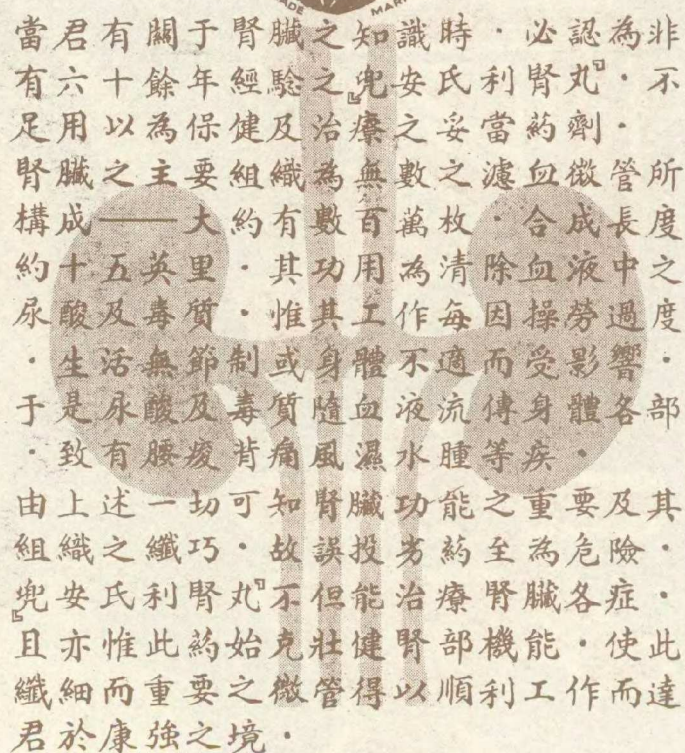 當君有關于腎臟之知識時·必認為非
有六十餘年經驗之『兜安氏利腎丸』·不
足用以為保健及治療之妥當葯劑·
腎臟之主要組織為無數之濾血微管所
構成——大約有數百萬枚·合成長度
約十五英里·其功用為清除血液中之
尿酸及毒質·惟其工作每因操勞過度
·生活無節制或身體不適而受影響·
于是尿酸及毒質隨血液流傳身體各部
·致有腰痠背痛風濕水腫等疾·
由上述一切可知腎臟功能之重要及其
組織之纖巧·故誤投劣葯至為危險·
『兜安氏利腎丸』不但能治療腎臟各症·
且亦惟此葯始克壯健腎部機能·使此
纖細而重要之微管得以順利工作而達
君於康強之境·